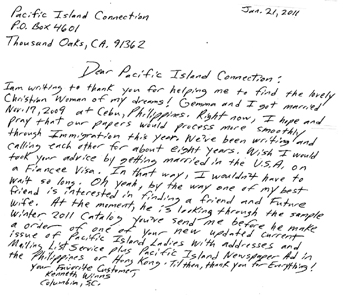 Pacific Island Connection
Jan. 21, 2011
P.O. Box 4601
Thousand Oaks, CA. 91362
Dear Pacific Island Connection:
I am writing to thank you for helping me to find the lovely
Christian Woman of my dreams! Gemma and I got married
Nov. 17, 2009 at Cebu, Philippines. Right now, I hope and
pray that our papers would process more smoothly
through Immigration this year. We've been writing and
calling each other for about eight years. Wish I would
took your advice by getting married in the U.S.A. on
a Fiancee Visa. In that way, I wouldn't have to
wait so long. Oh yeah, by the way one of my best
friend is interested in finding a friend and Future
wife. At the moment, he is looking through the sample
Winter 2011 Catalog you've send me before he make
a order of one of your new updated current
issue of Pacific Island Ladies with addresses and
Mailing List Service plus Pacific Island Newspaper Ad in
the Philippines or Hong Kong. Til then, thank you for Everything!
Your Favorite Customer,
Kenneth Winns
Columbia, SC.